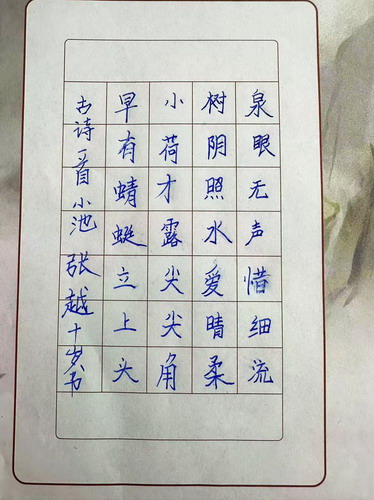 泉眼无声惜细流
树阴照水爱晴柔
小荷才露尖尖角
早有蜻蜓立上头
古诗一首小池张越十岁书